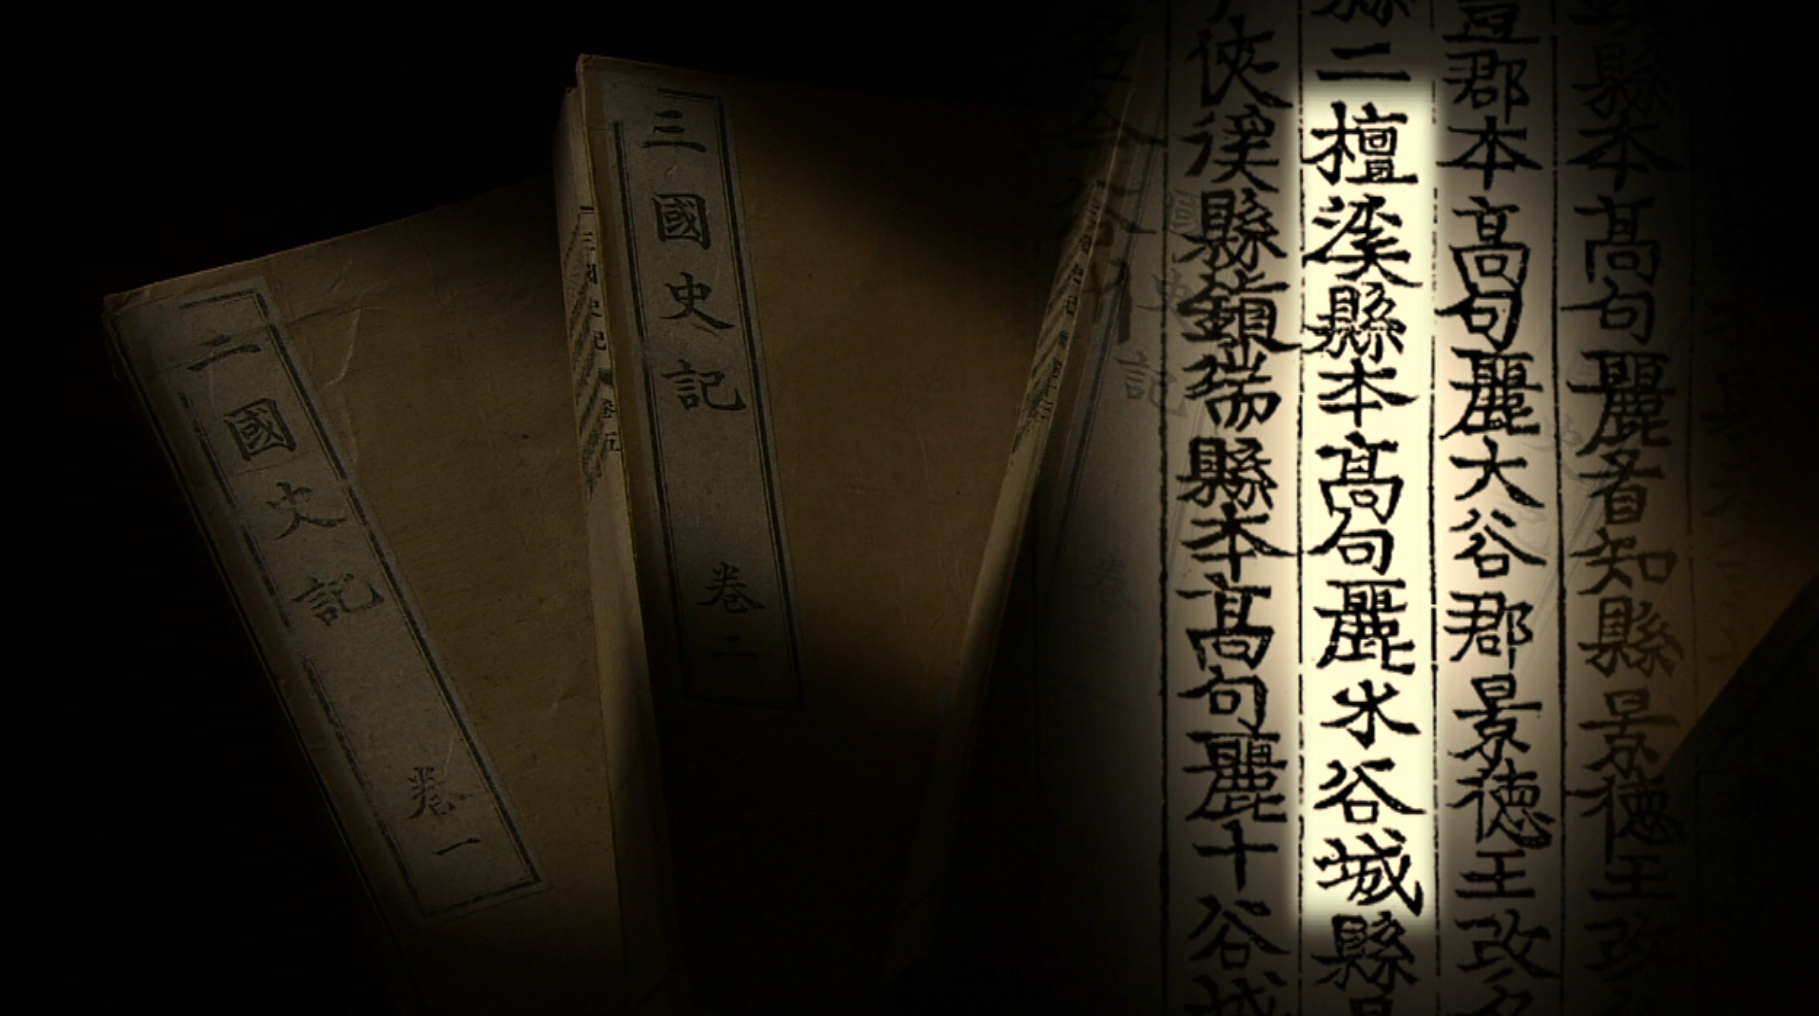 三國史記 卷一
三國史記 卷二
三國史記 卷五
縣本高句麗首知縣景德王改
郡本高句麗大谷郡景德王改名
縣二檀溪縣本高句麗水谷城縣
俠溪縣鎭湍縣本高句麗十谷城